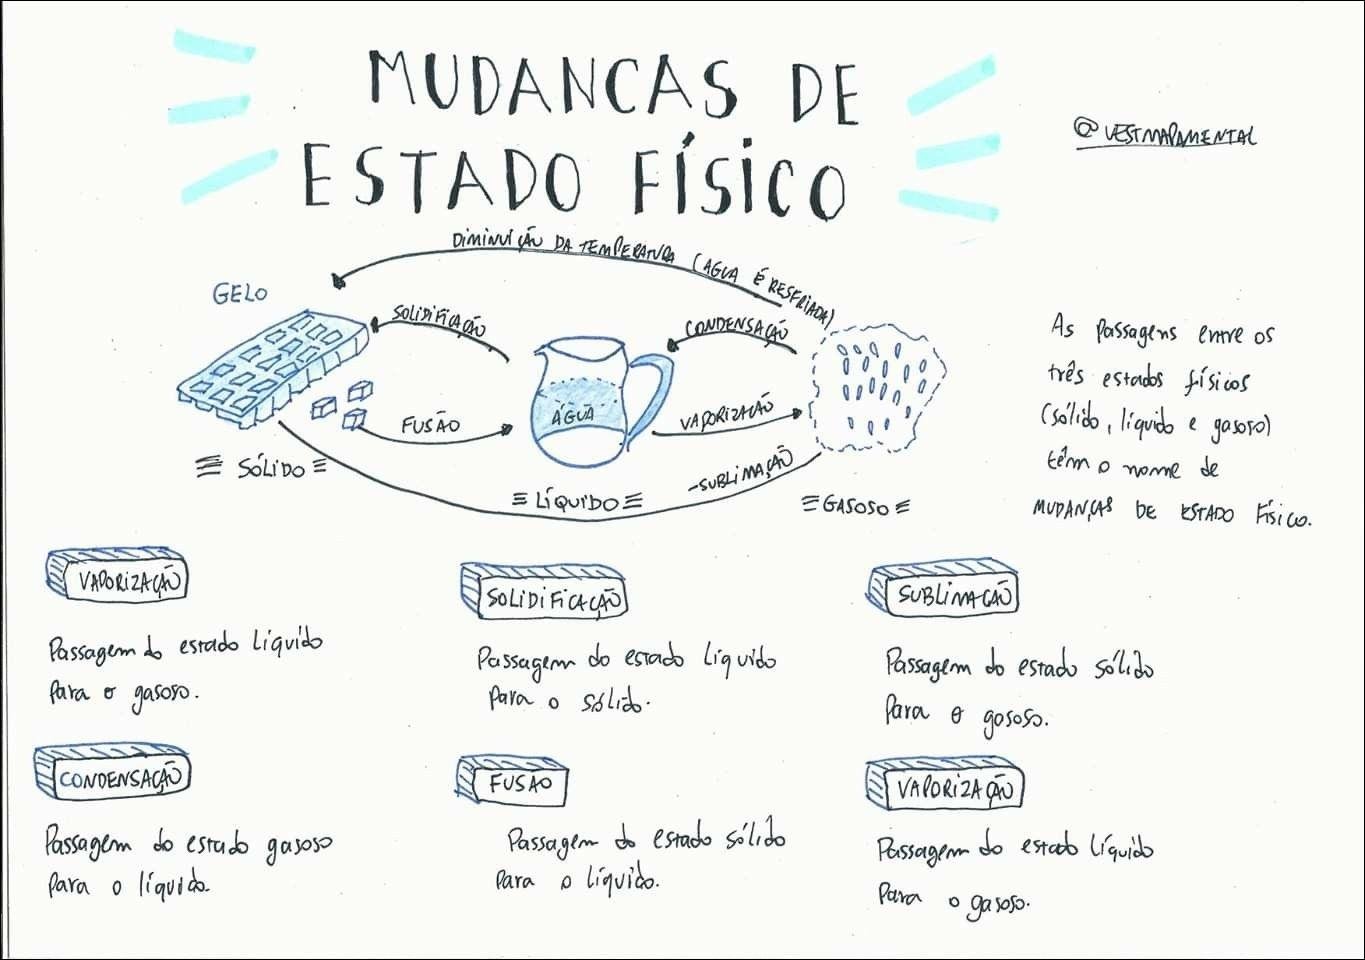 MUDANCAS DE
ESTADO FÍSICO
@VESTMAPAMENTAL
DIMINUIÇÃO DA TEMPERATURA (AGUA É RESFRIADA)
GELO
SOLIDIFICAÇÃO
CONDENSAÇÃO
ÁGUA
FUSÃO
VAPORIZAÇÃO
SÓLIDO
LÍQUIDO
-SUBLIMAÇÃO
GASOSO
As passagens entre os
três estados físicos
(sólido, líquido e gasoso)
têm o nome de
MUDANÇAS DE ESTADO FÍSICO.
VAPORIZAÇÃO
Passagem do estado líquido
para o gasoso.
SOLIDIFICAÇÃO
Passagem do estado líquido
para o sólido.
SUBLIMAÇÃO
Passagem do estado sólido
para o gasoso.
CONDENSAÇÃO
Passagem do estado gasoso
para o líquido.
FUSAO
Passagem do estado sólido
para o líquido.
VAPORIZAÇÃO
Passagem do estado líquido
para o gasoso.